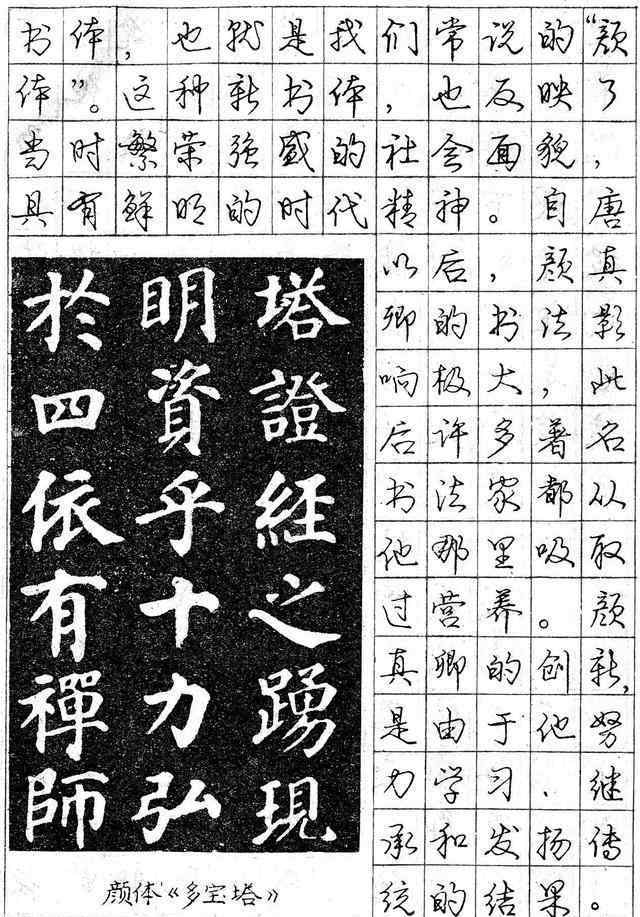 书体，也就是我们常说的“颜
体”。这种新书体，也反映了
当时繁荣强盛的社会面貌，
具有鲜明的时代精神。自唐
以后，颜真
卿的书法影
响极大，此
后许多著名
书法家都从
他那里吸取
过营养。颜
真卿的创新，
是由于他努
力学习、继
承和发扬传
统的结果。
塔證經之踴現
明資乎十力弘
於四依有禪師
颜体《多宝塔》